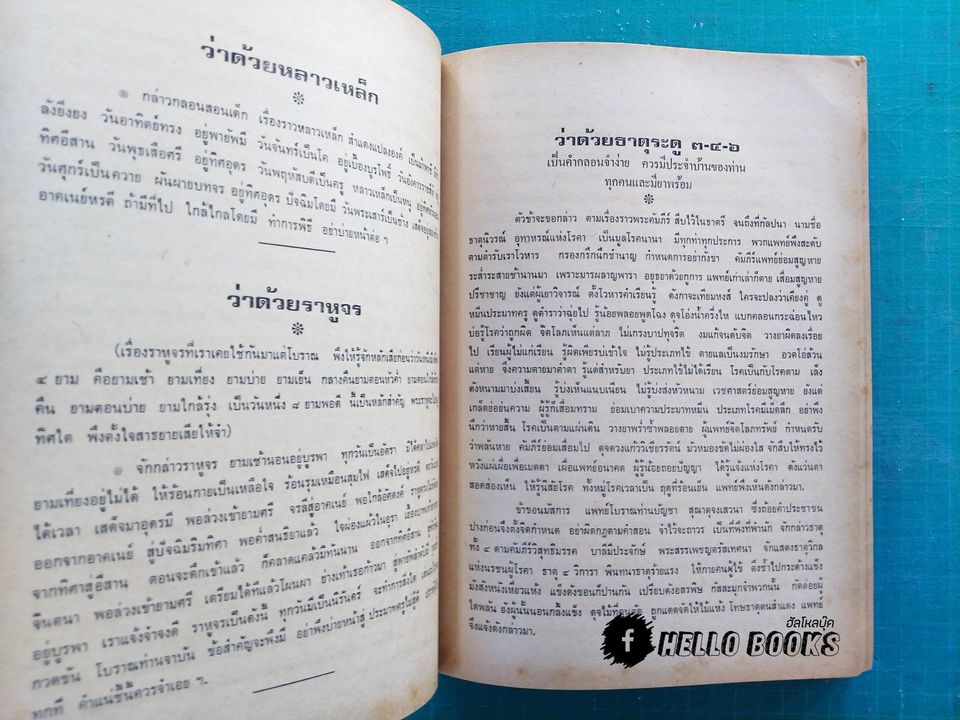 ว่าด้วยหลาวเหล็ก
๏ กล่าวกลอนสอนเด็ก เรื่องราวหลาวเหล็ก สำแดงแปลงองค์
ลังยิ่งยง วันอาทิตย์ทรง อยู่พายัพมี วันจันทร์เป็นโค อยู่เบื้องบูรโพธิ์
ทิศอีสาน วันพุธเสือศรี อยู่ทิศอุดร วันพฤหัสบดีเป็นครู หลาวเหล็กเป็นหนู
วันศุกร์เป็นควาย ผันผายบทจร อยู่ทิศอุดร ปัจฉิมโดยมี วันพระเสาร์เป็นช้าง
อาคเนย์หรดี ถ้ามีที่ไป ใกล้ไกลโดยมี ทำการพิธี อย่าบ่ายหน้าต่อ ฯ
ว่าด้วยราหูจร
(เรื่องราหูจรที่เราเคยใช้กันมาแต่โบราณ พึงให้รู้จักหลักเสียก่อนว่า
๔ ยาม คือยามเช้า ยามเที่ยง ยามบ่าย ยามเย็น กลางคืนยามตอนหัวค่ำ
คืน ยามตอนบ่าย ยามใกล้รุ่ง เป็นวันหนึ่ง ๘ ยามพอดี นี้เป็นหลักสำคัญ
ทิศใด พึงตั้งใจสาธยายเสียให้จำ)
๏ จักกล่าวราหูจร ยามเช้านอนอยู่บูรพา ทุกวันเป็นอัตรา
ยามเที่ยงอยู่ไม่ได้ ให้ร้อนกายเป็นเหลือใจ ร้อนรุมเหมือนสุมไฟ
ได้เวลา เสด็จมาอุดรมี พอล่วงเข้ายามศรี จรลีสู่อาคเนย์
ออกจากอาคเนย์ สู่ปัจฉิมริมทิศา พอค่ำสนธยาแล้ว
จากทิศาสู่อีสาน ตอนจะดึกเข้าแล้ว ก็คลาดแคล้วมิทันนาน ออกจากทิศอีสาน
จินตนา พอล่วงเข้ายามศรี เตรียมได้ที่แล้วโผนผา ย่างเท้าเธอก้าวมา
อยู่บูรพา เราแจ้งจำจงดี ราหูจรเป็นดังนี้ ทุกวันมีเป็นนิรันดร์
กวดขัน โบราณท่านจาบัน ข้อสำคัญจะพึงมี อย่าพึงบ่ายหน้าสู่
ทุกที คำแน่ชี้นี้ควรจำเอย ฯ
ว่าด้วยธาตุระดู ๓-๔-๖
เป็นคำกลอนจำง่าย ควรมีประจำบ้านของท่าน
ทุกคนและมียาพร้อม
ตัวข้าจะขอกล่าว ตามเรื่องราวพระคัมภีร์ สืบไว้ในธาตรี จนถึงที่กัลปนา นามชื่อ
ธาตุนิวรณ์ อุทาหรณ์แห่งโรคา เป็นมูลโรคนานา มีทุกท่าทุกประการ พวกแพทย์พึงสะดับ
ตามตำรับเราโวหาร กรองกรึกนึกชำนาญ กำหนดการอย่ากังขา คัมภีร์แพทย์ย่อมสูญหาย
ระส่ำระสายช้านานมา เพราะมารผลาญพารา อยุธยาด้วยกูการ แพทย์เก่าเล่าก็ตาย เสื่อมสูญหาย
ปรีชาชาญ ยังแต่ผู้เยาวิจารณ์ ตั้งโวหารคำเรียนรู้ ดังกาจะเทียมหงส์ ใครจะปลงว่าเคียงคู่ ดู
หมิ่นประมาทครู ดูตำราว่าฉุยไป รู้น้อยพลอยพูดโฉง ดุจโอ่งน้ำครึ่งไห แบกคลอนกระฉ่อนไหว
บ่อรู้โรคว่าถูกผิด จิตโลภเห็นแต่ลาภ ไม่เกรงบาปทุจริต งมแก้จนดับจิต วางยาผิดลงเรื่อย
ไป เรียนผู้ไม่แก่เรียน รู้ผิดเพียรบเข้าใจ ไม่รู้ประเภทไข้ ตายแลเป็นงมรักษา อวดโอ่ล้วน
แต่หาย จึงความตายมาต่ำคา รู้แต่สำหรับยา ประเภทไข้ไม่ได้เรียน โรคเป็นกับโรคตาม เล็ง
ดังหนามมาบ่งเสี้ยน รู้บ่งเห็นแนบเนียน ไม่รู้บ่งสงหัวหนาม เวชศาสตร์ย่อมสูญหาย ยังแต่
เกล็ดย่อยย่นความ ผู้รู้ก็เสื่อมทราม ย่อมเบาความประมาทหมิ่น ประเภทโรคมีเม็ดลึก อย่าพึง
นึกว่าหายสิ้น โรคเป็นตามแผ่นดิน วางยาพร่ำซ้ำพลอยฉาย ผู้แพทย์จิตโลภทรัพย์ กำหนดรับ
ว่าพลันหาย คัมภีร์ย่อมเสื่อมไป ดุจดวงแก้ววิเชียรรัตน์ มัวหมองขัดไม่ผ่องใส จักสืบให้ทรงไว้
หวังแผ่เผื่อเพื่อเมตตา เผื่อแพทย์อนาคต ผู้รู้น้อยถอยปัญญา ได้รู้แจ้งแห่งโรคา ดังแว่นตา
สอดส่องเห็น ให้รู้นิสัยโรค ทั้งหมู่โรคเวลาเป็น ฤดูที่ร้อนเย็น แพทย์พึงเห็นดังกล่าวมา.
ข้าขอนมัสการ แพทย์โบราณท่านบัญชา สุณาดุจงเสวนา ซึ่งถ้อยคำประชาชน
ปางก่อนจึงตั้งจิตกำหนด อย่าผิดกฎตามคำสอน จำไว้จะถาวร เป็นที่พึ่งที่พำนัก จักกล่าวธาตุ
ทั้ง ๔ ตามคัมภีร์วิสุทธิมรรค บาลีมีประจักษ์ พระสรรเพชญตรัสเทศนา จักแสดงธาตุวิกล
แห่งนรชนผู้โรคา ธาตุ ๔ วิการา พินทนาธาตุร้ายแรง ให้กายคนผู้ไข้ ดึงรั้วไปกระด้างแข็ง
มังสังหนังเหี่ยวแห้ง แข็งดังขอนก็ปานกัน เปรียบดังอสรพิษ กัสสะมุกจำพวกนั้น กัดต่อยผู้
ใดพลัน ยังผู้นั้นนอนกลิ้งแข็ง ดุจไม้ท่อนข้อ ถูกแดดจัดให้ไม้แห้ง โทษธาตุตนสำแดง แพทย์
จึงแจ้งดังกล่าวมา.
ฮัลโหลบุ๊ค
f HELLO BOOKS